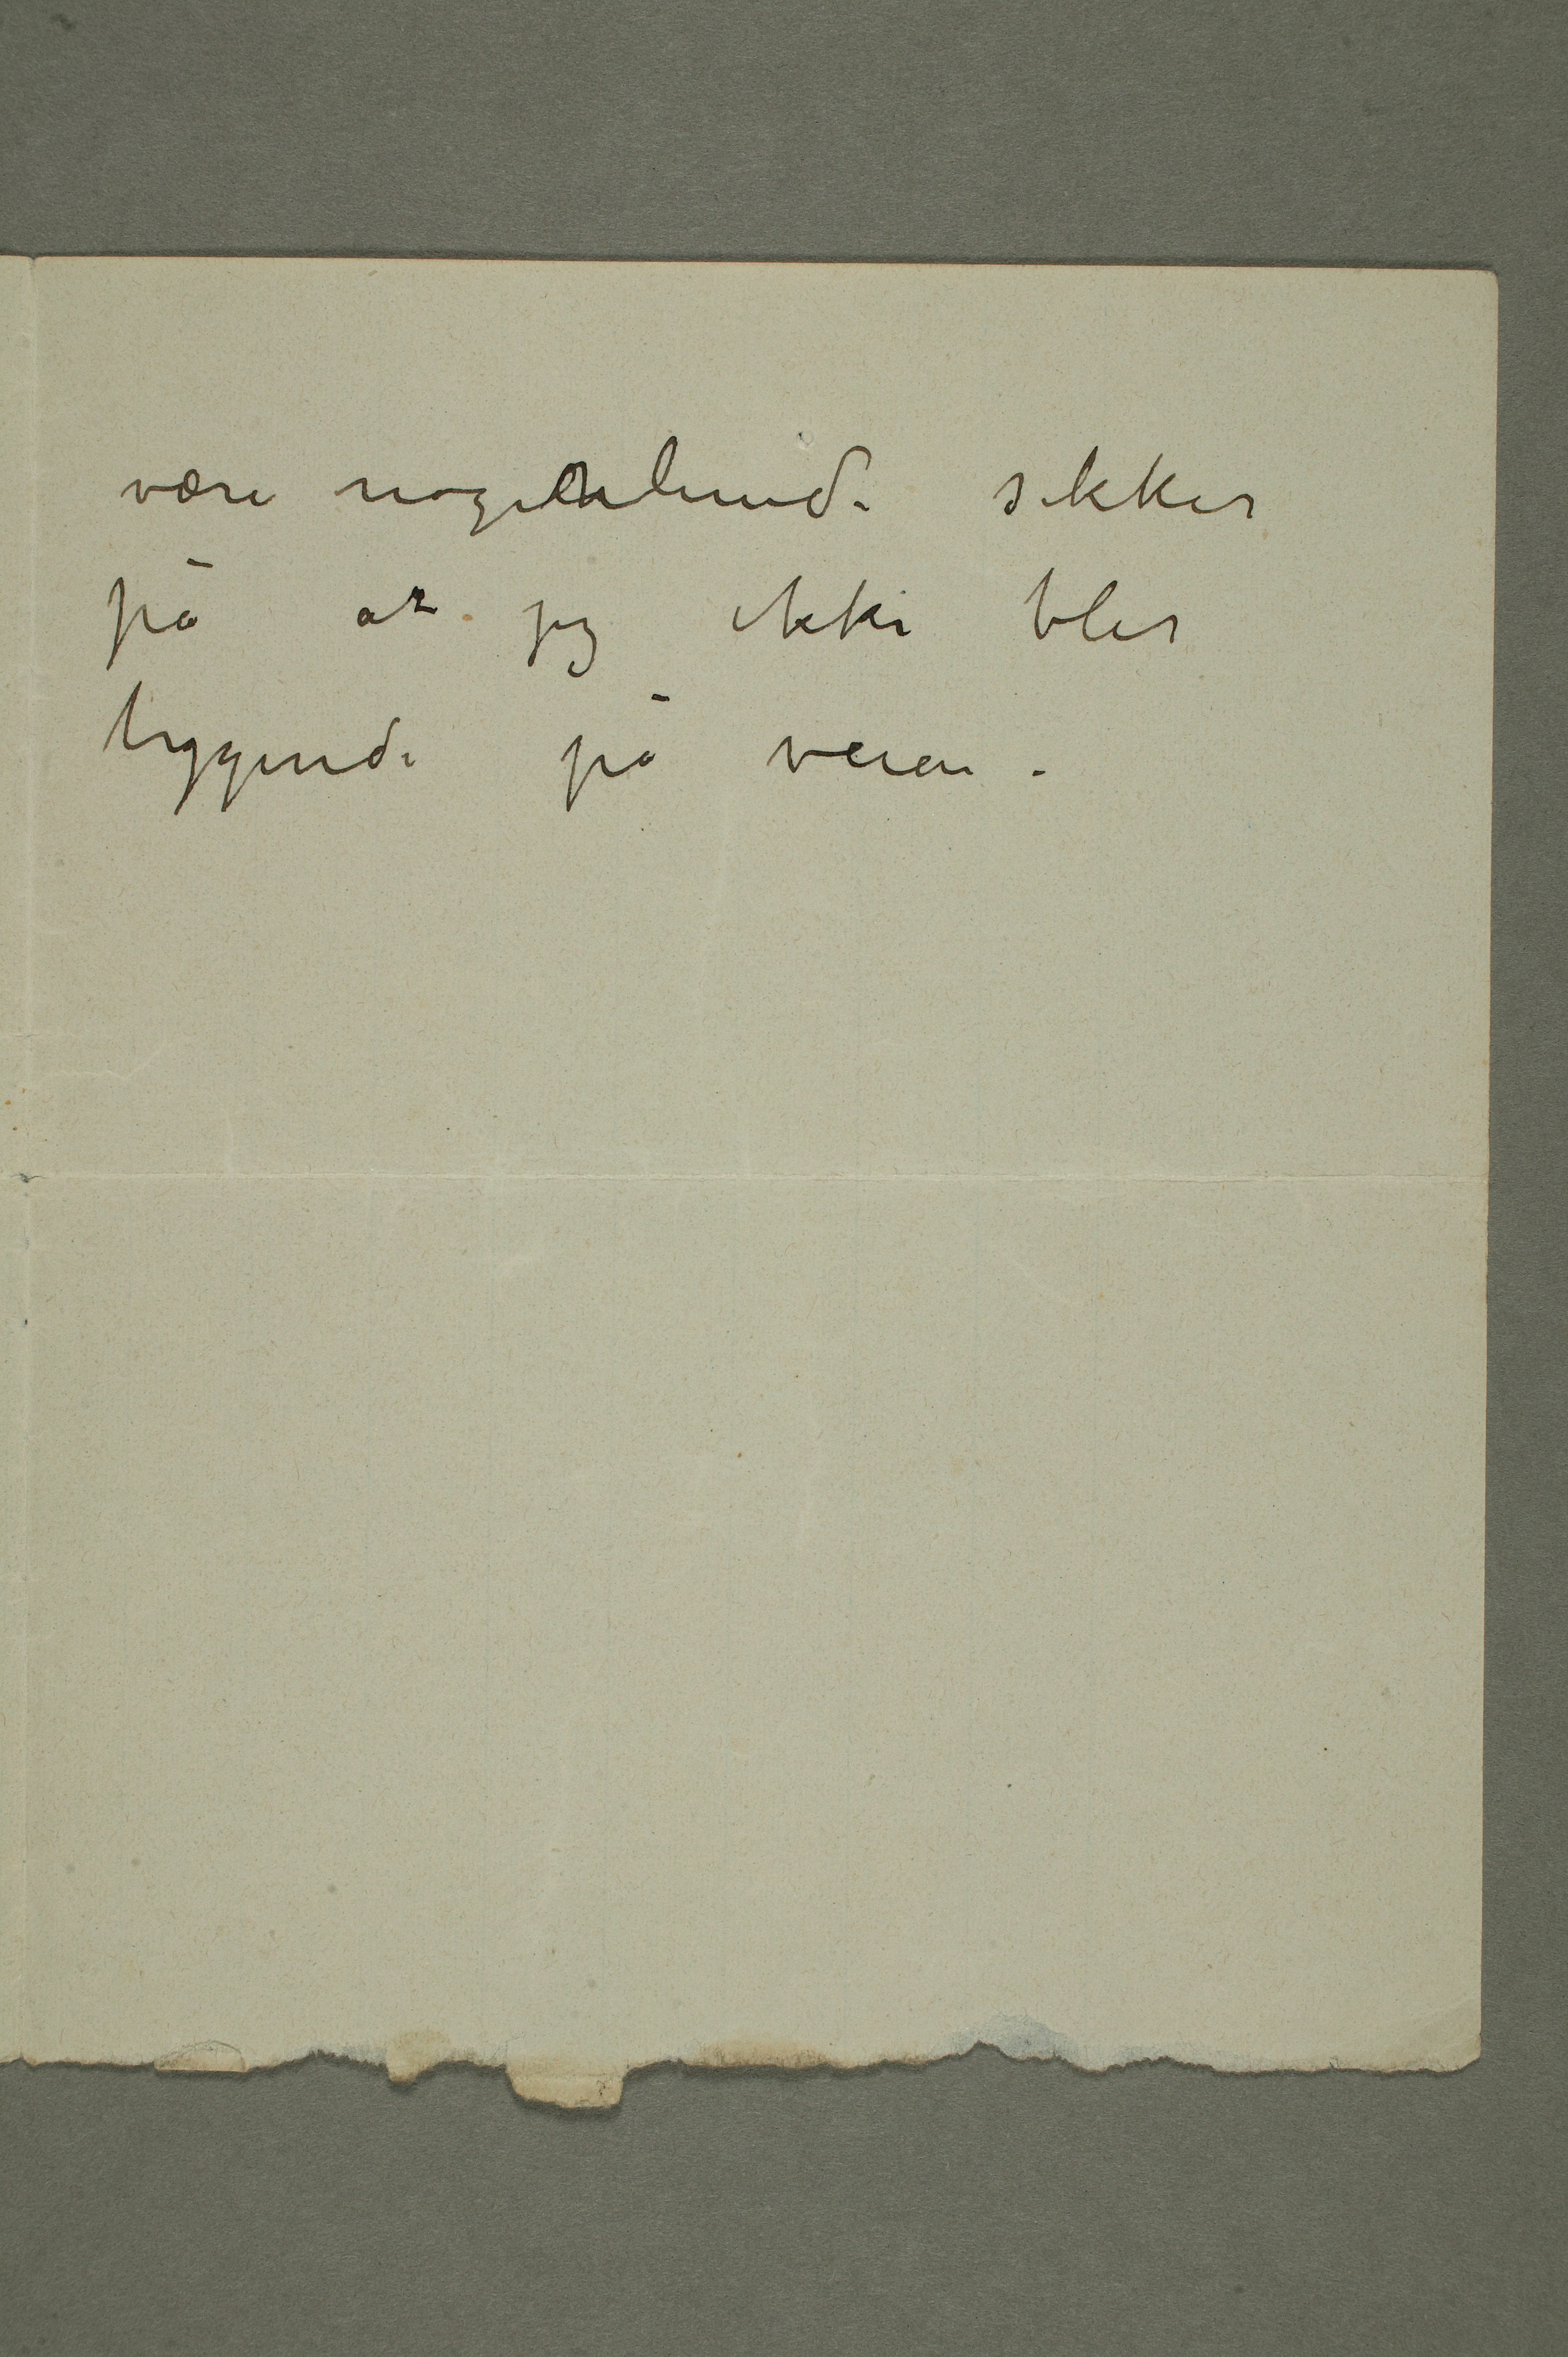 være nogenlunde sikker
på at jeg ikke blir
liggende på veien.